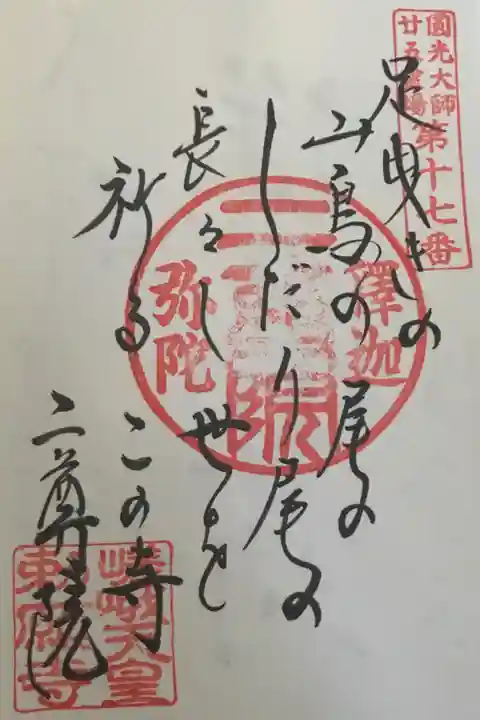 圓光大師
廿五霊場
第十七番
足曳きの
山鳥の尾の
しだり尾の
長々し世を
祈る
この寺
二尊院
釋迦
弥陀
二尊院
嵯峨天皇
勅願寺